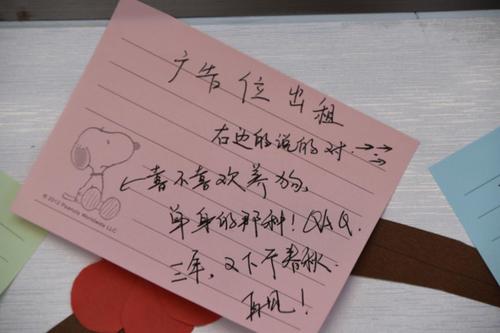 广告位出租
右边的说的对.→→→
←喜不喜欢养狗,
单身的那种！QAQ.
三年,又下于春秋
再见！
© 2012 Peanuts Worldwide LLC